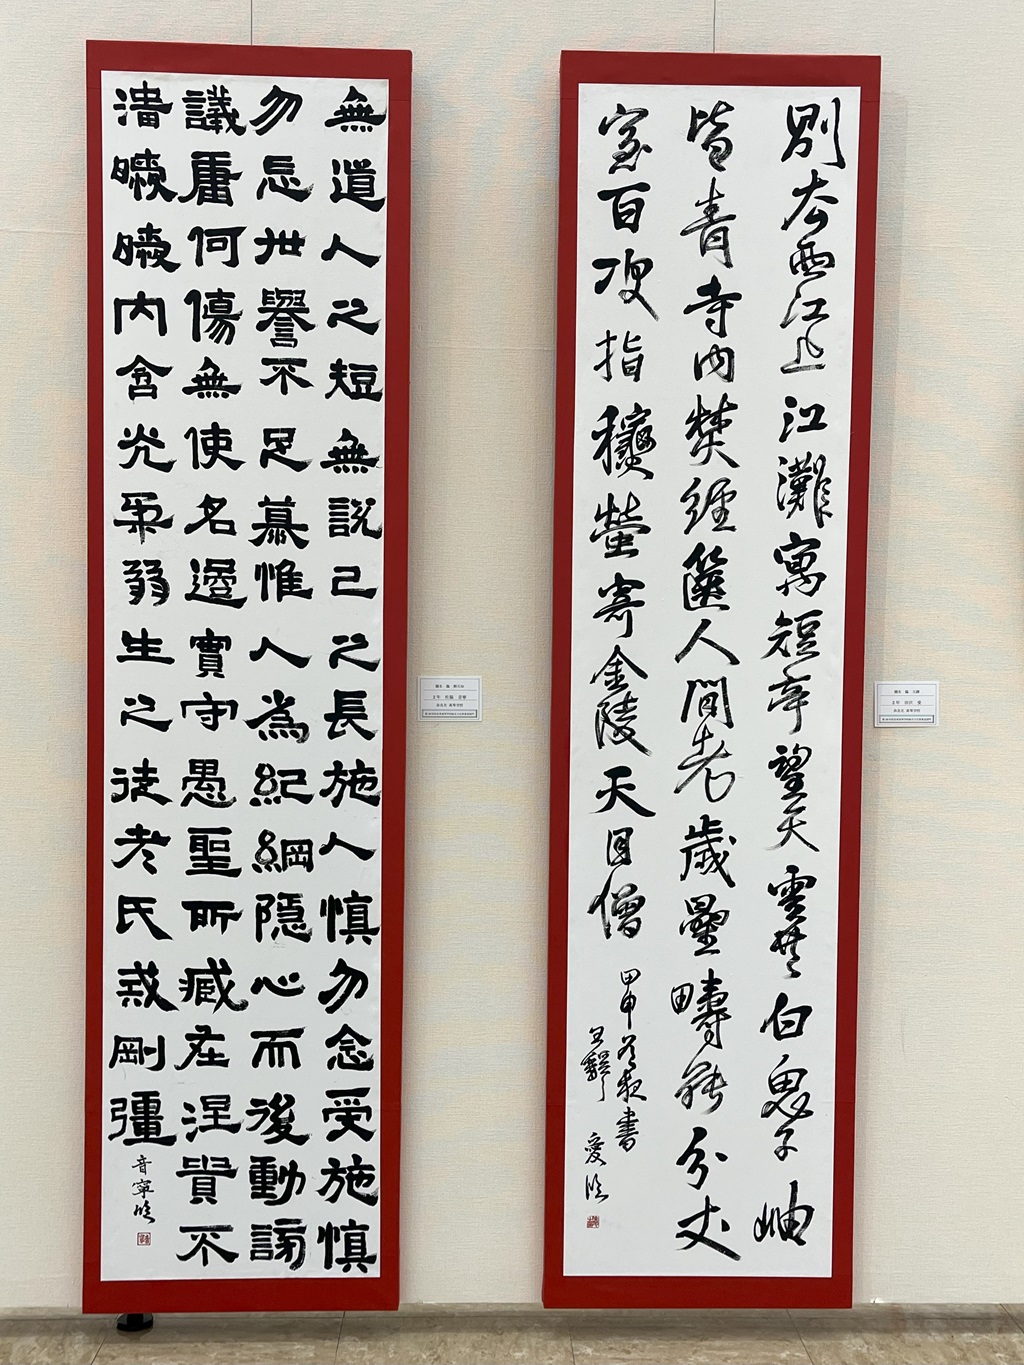 別去西江上江灘寓短亭望天雲共白鬼子岫
皆青寺內焚經篋人間老歲星疇能分丈
室百頃指螢寄金陵天目僧
甲申夜書
王鐸
愛臨
無道人之短無説己之長施人慎勿念受施慎
勿忘世譽不足慕惟人為紀綱隠心而後動謗
議庸何傷無使名過實守愚聖所臧在涅貴不
淄曖曖内含光柔弱生之徒老氏戒剛彊
音寧臨